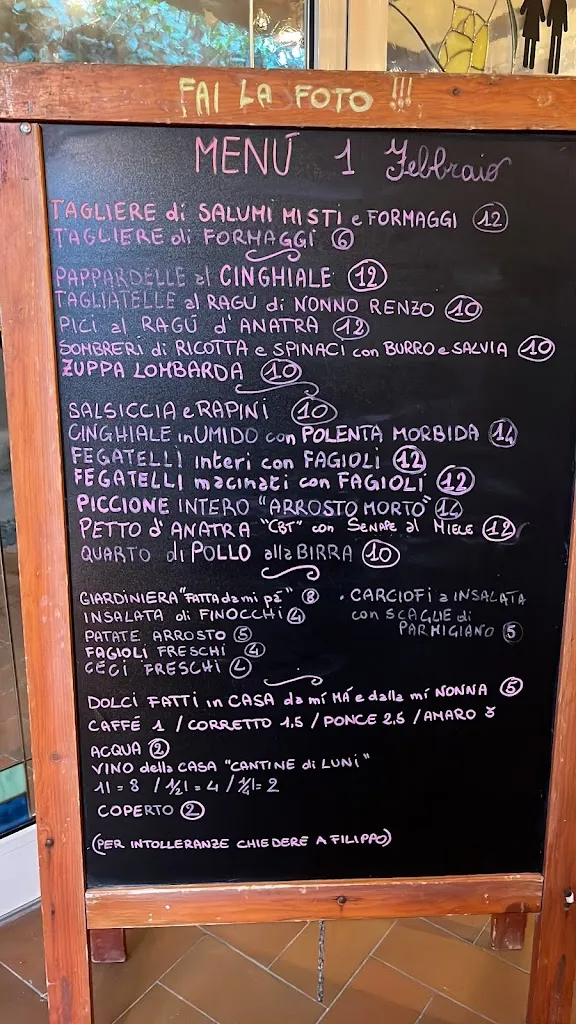 FAI LA FOTO !!!
MENÚ 1 Febbraio
TAGLIERE di SALUMI MISTI e FORMAGGI 12
TAGLIERE di FORMAGGI 6
PAPPARDELLE al CINGHIALE 12
TAGLIATELLE al RAGÚ di NONNO RENZO 10
PICI al RAGÚ d'ANATRA 12
SOMBRERI di RICOTTA e SPINACI con BURRO e SALVIA 10
ZUPPA LOMBARDA 10
SALSICCIA e RAPINI 10
CINGHIALE in UMIDO con POLENTA MORBIDA 14
FEGATELLI interi con FAGIOLI 12
FEGATELLI macinati con FAGIOLI 12
PICCIONE INTERO "ARROSTO MORTO" 14
PETTO d'ANATRA "CBT" con SENAPE al MIELE 12
QUARTO di POLLO alla BIRRA 10
GIARDINIERA "FATTA da mi pà" 8
INSALATA di FINOCCHI 4
PATATE ARROSTO 5
FAGIOLI FRESCHI 4
CECI FRESCHI 4
. CARCIOFI a INSALATA
con SCAGLIE di
PARMIGIANO 5
DOLCI FATTI in CASA da mi MÁ e dalla mi NONNA 5
CAFFÉ 1 / CORRETTO 1,5 / PONCE 2,5 / AMARO 3
ACQUA 2
VINO della CASA "CANTINE di LUNI"
1l = 8 / 1/2l = 4 / 1/4l = 2
COPERTO 2
(PER INTOLLERANZE CHIEDERE A FILIPPO)